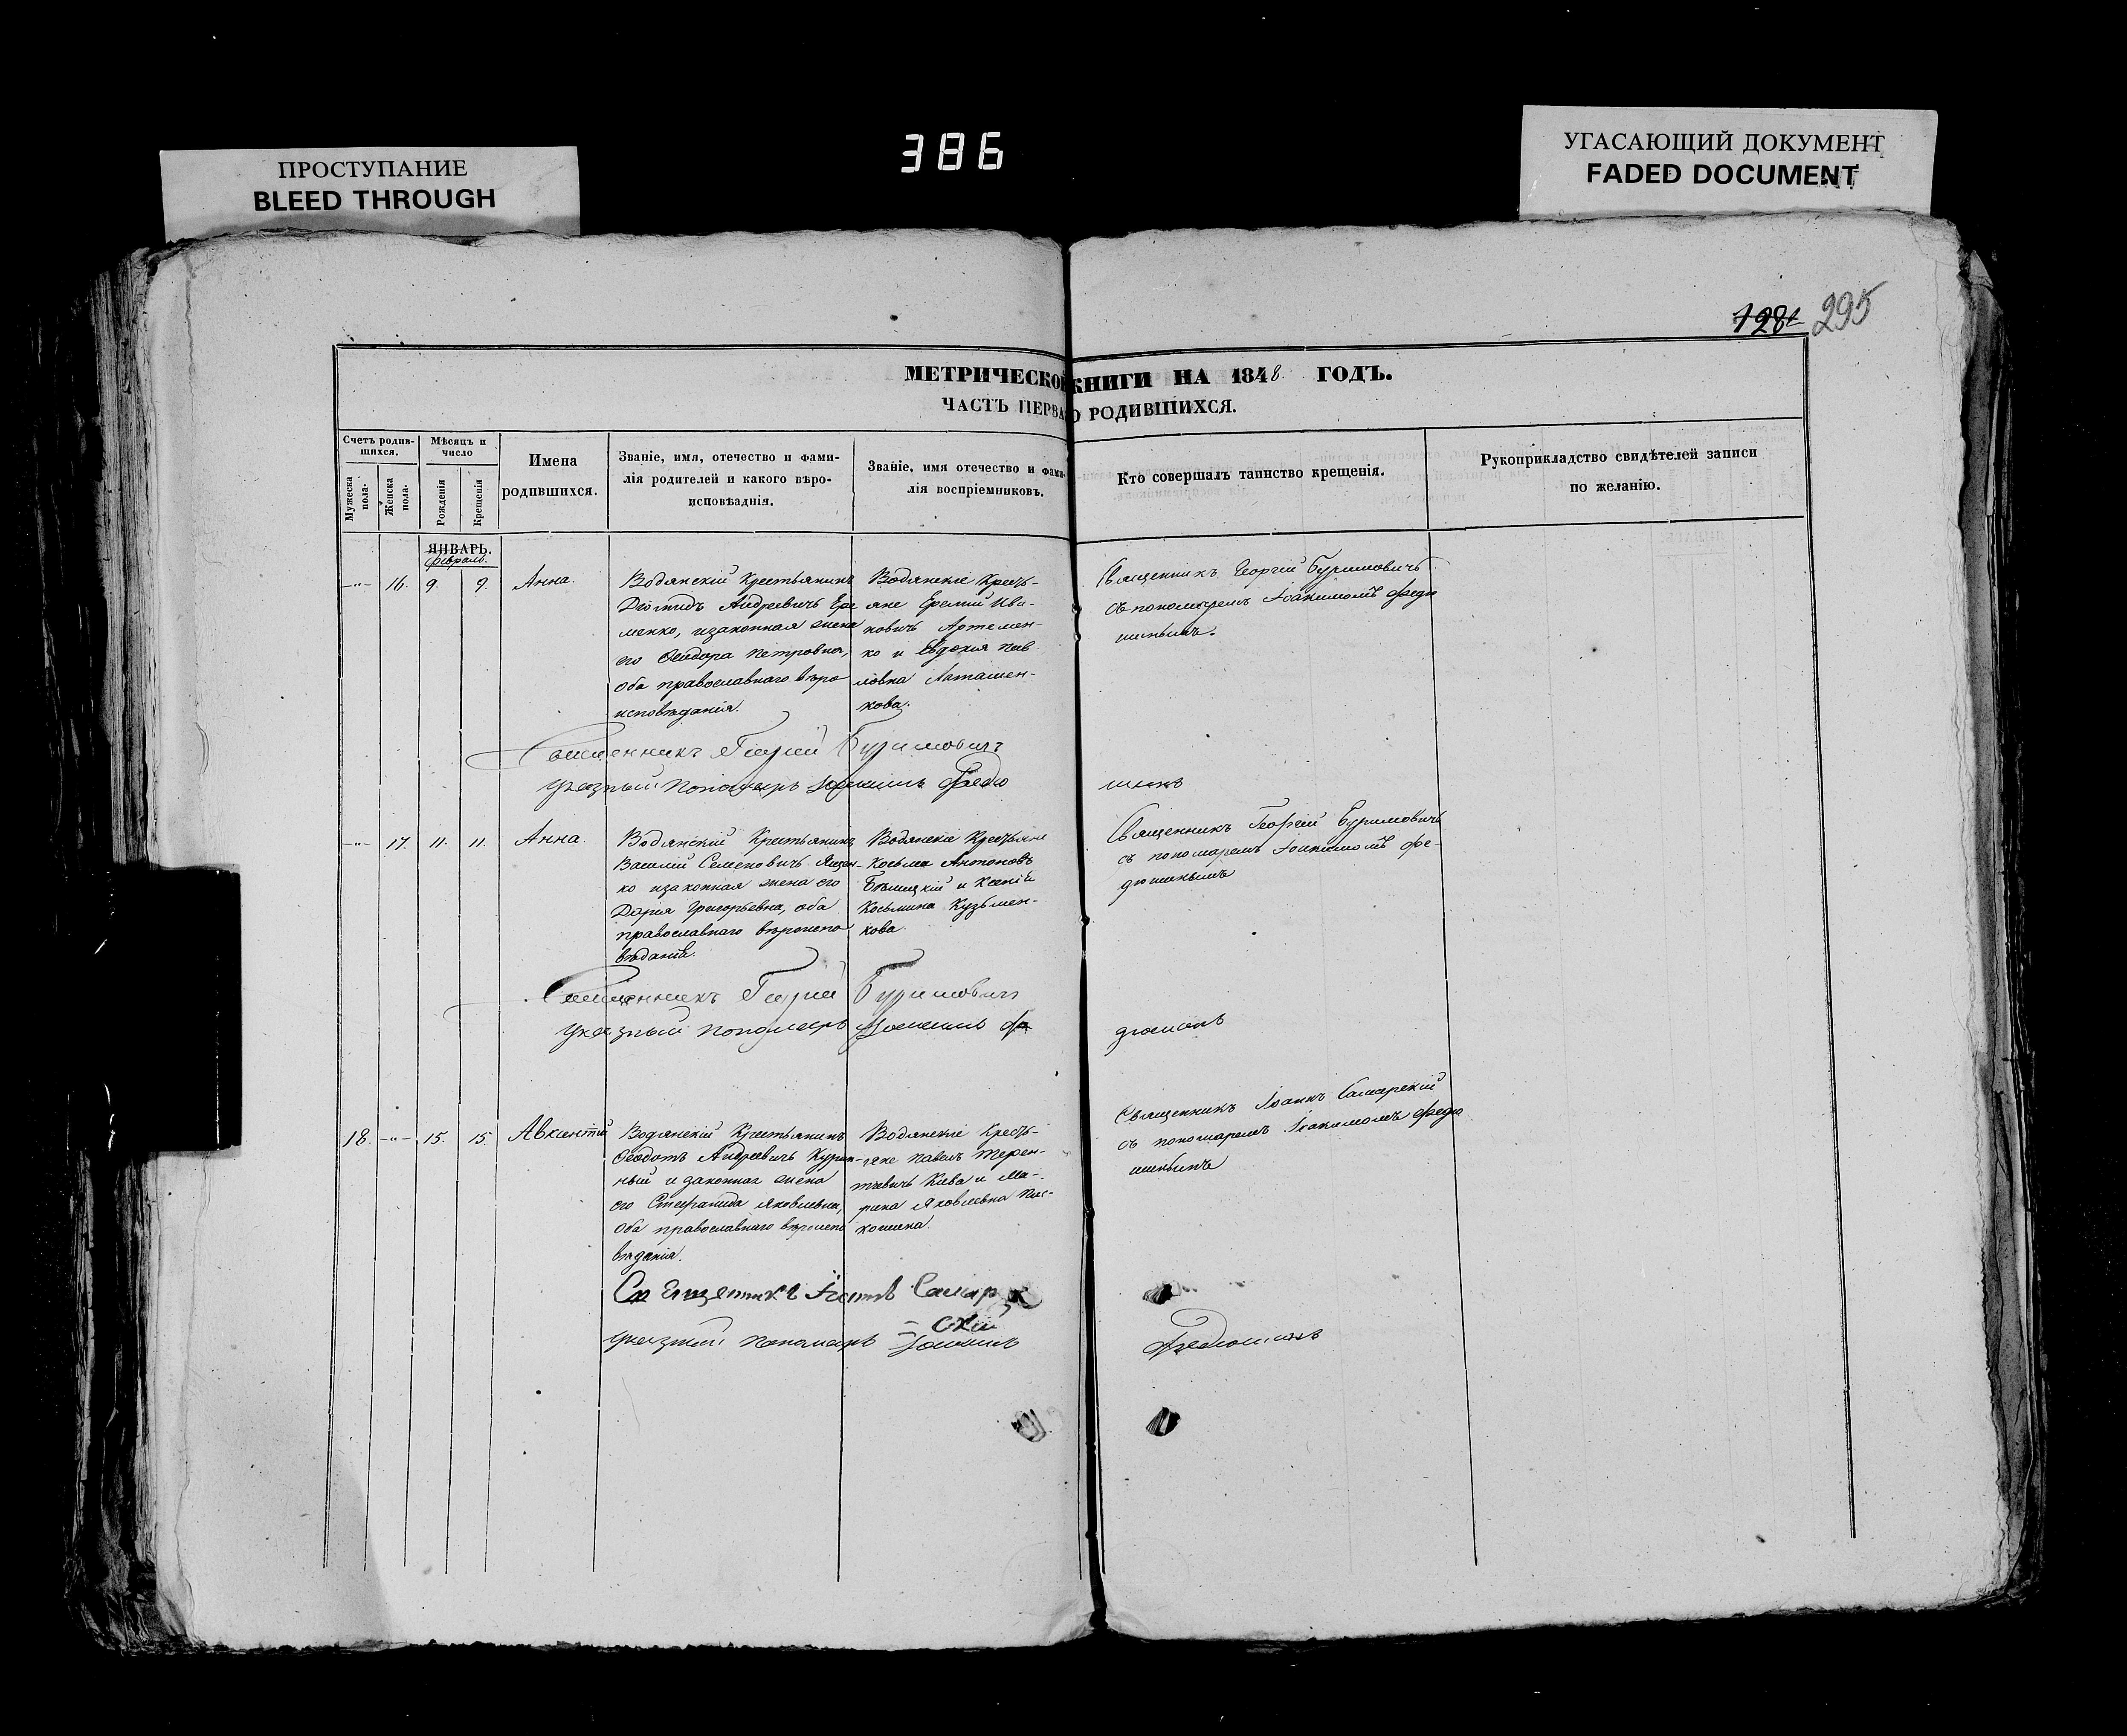 ПРОСТУПАНИЕ
BLEED THROUGH
386
УГАСАЮЩИЙ ДОКУМЕНТ
FADED DOCUMENT
1281 295
МЕТРИЧЕСКОЙ КНИГИ НА 1848. ГОДЪ.
ЧАСТЬ ПЕРВА О РОДИВШИХСЯ.
Счетъ родив-
шихся.
Мужеска
пола.
Женска
пола.
Мѣсяцъ и
число
Рожденія
Крещенія
Имена
родившихся.
Званіе, имя, отечество и фами-
лія родителей и какого вѣро-
исповѣаднія.
Званіе, имя отечество и фами-
лія воспріемниковъ.
Кто совершалъ таинство крещенія.
Рукоприкладство свидѣтелей записи
по желанію.
ЯНВАРЬ.
февраль.
-"- 16. 9. 9. Анна.
Водянскій Крестьянинъ
Діомидъ Андреевичъ Ере
менко, изаконная жена
его Ѳеодора Петровна,
оба православнаго вѣро
исповѣданія.
Водянскіе Кресть-
яне Еремій Ива-
новичъ Артемен-
ко и Евдокія Пав
ловна
кова.
Священникъ Георгій Буримовичъ
съ пономаремъ Іоакимомъ Федю
шинымъ.
Священникъ Георгій Буримовичъ
Указный Пономарь Іоакимъ Федю
шинъ
-"- 17. 11. 11. Анна.
Водянскій Крестьянинъ
Василій Семеновичъ Ящен-
ко изаконная жена его
Дарія Григорьевна, оба
православнаго вѣроиспо
вѣданія.
Водянскіе Крестьяне
Косьма Антоновъ
Бѣлицкій и Ксенія
Косьмина Кузьмен-
кова.
Священникъ Георгій Буримовичъ
съ пономаремъ Іоакимомъ Фе-
дюшинымъ
Священникъ Георгій Буримовичъ
Указный Пономарь Іоакимъ Фе
дюшинъ
18. -"- 15. 15. Авксентій
Водянскій Крестьянинъ
Ѳеодотъ Андреевичъ Курин-
ный и законная жена
его Стефанида Яковлевна,
оба православнаго вѣроиспо
вѣданія.
Водянскіе Кресть-
яне Павелъ Терен-
тьевичъ Кива и Ма-
рина Яковлевна
кошина.
Священникъ Іоаннъ Самарскій
съ пономаремъ Іоакимомъ Федю
шинымъ
Священникъ Іоаннъ Самар
скій
Указный Пономарь Іоакимъ
Федюшинъ